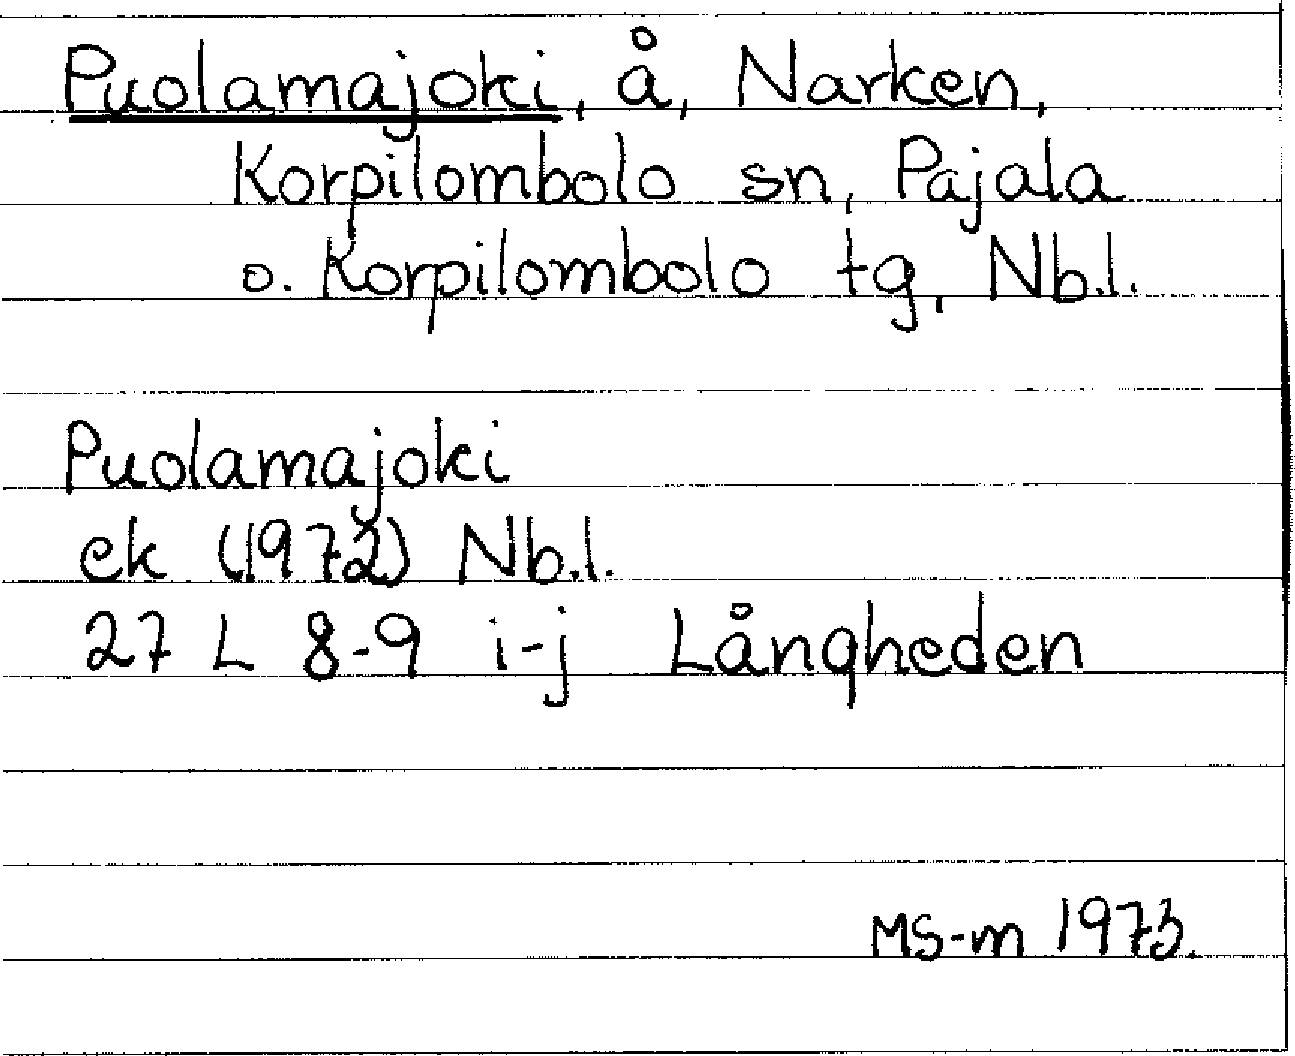 Puolamajoki, å, Narken,
Korpilombolo sn, Pajala
o. Korpilombolo tg, Nb.l.
Puolamajoki
ek (1972) Nb.l.
27 L 8-9 i-j Långheden
MS-m 1973.